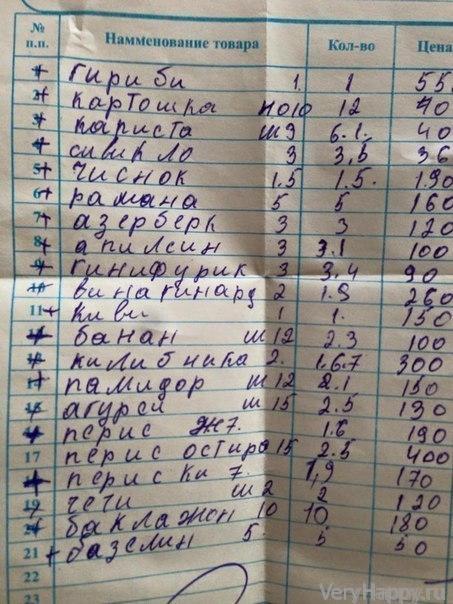 № п.п. Наименование товара Кол-во Цена
1 + гириби 1. 1 55
2 + картошка но10 12 40
3 + кариста ш9 6.1. 40
4 + сивикло 3 3,5 36
5 + чиснок 1.5 1.5. 190
6 + рамана 5 5 160
7 + азерберк 3 3 120
8 + апилсин 3 3.1 100
9 + гинифурик 3 3,4 90
10 + винагинард 2 1.9 260
11 + киви 1 1. 150
12 + банан ш12 2.3 100
килибника 2. 1.6.7 300
памидор ш12 2.1 150
агурси ш15 2.5 130
перис ж7. 1.6 190
17 перис остиро 15 2.5 400
перис ки 7. 1,9 170
19 чечи ш2 2 120
баклажон 10 10 180
21 + базелин 5. 5 50
22
23
VeryHappy.ru